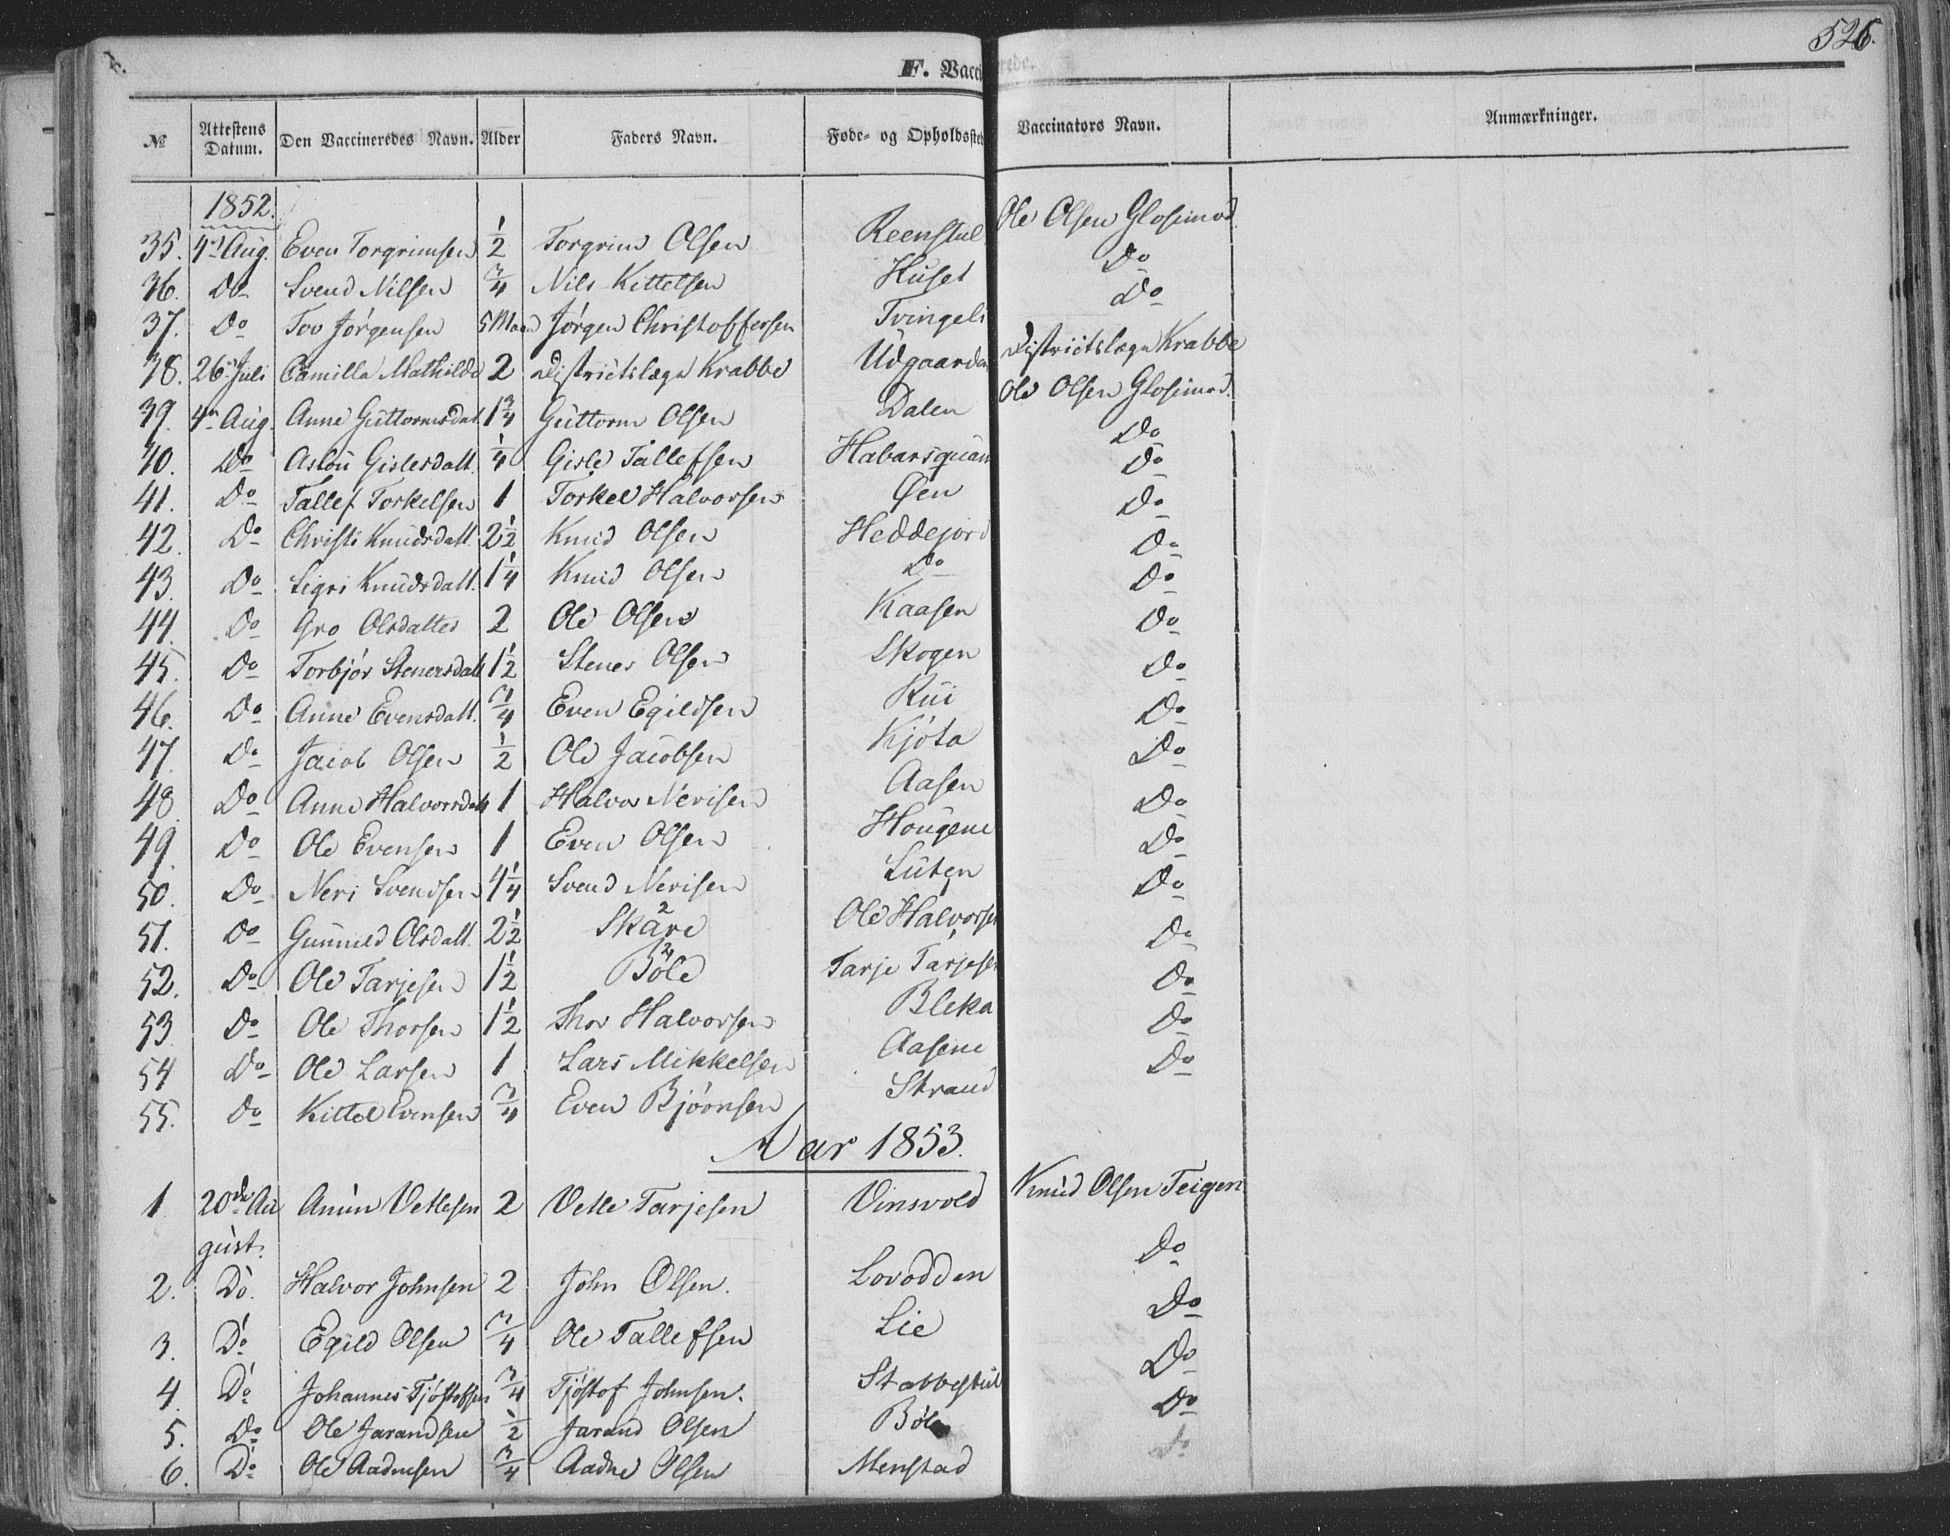 526.
F. Vacci
№ Attestens Datum. Den Vaccineredes Navn. Alder Faders Navn. Føde- og Opholdssted Vaccinators Navn. Anmærkninger.
1852.
35. 4d Aug. Even Torgrimsen 1/2 Torgrim Olsen Reenstul Ole Olsen Glosimod
36. Do Svend Nilsen 3/4 Nils Kittelsen Huset Do
37. Do Tov Jørgensen 5 Maan Jørgen Christoffersen Tvingeli Do
38. 26 Juli Camilla Mathilde 2 Districtslæge Krabbe Udgaarden Districtslæge Krabbe
39. 4de Aug. Anne Guttormsdat. 1 3/4 Guttorm Olsen Dalen Ole Olsen Glosimod.
40. Do Aslou Gislesdatt. 1/4 Gisle Tallefsen Habarsquam Do
41. Do Tallef Torkelsen 1 Torkel Halvorsen Øen Do
42. Do Christi Knudsdatt. 2 1/2 Knud Olsen Heddejord Do
43. Do Sigri Knudsdatt. 1 1/4 Knud Olsen Do Do
44. Do Gro Olsdatter 2 Ole Olsen Kaasen Do
45. Do Torbjør Stenersdatt 1 1/2 Stener Olsen Skogen Do
46. Do Anne Evensdatt. 3/4 Even Egildsen Rui Do
47. Do Jacob Olsen 1/2 Ole Jacobsen Kjøta Do
48. Do Anne Halvorsdatt 1 Halvor Nerisen Aasen Do
49. Do Ole Evensen 1 Even Olsen Hougene Do
50. Do Neri Svendsen 4 1/4 Svend Nerisen Luten Do
51. Do Gunnild Olsdatt. 2 1/2 Skare Ole Halvorsen Do
52. Do Ole Tarjesen 1 1/2 Böle Tarje Tarjesen Do
53. Do Ole Thorsen 1 1/2 Thor Halvorsen Bleka Do
54 Do Ole Larsen 1 Lars Mikkelsen Aasene Do
55. Do Kittel Evensen 3/4 Even Bjöonsen Strand Do
Aar 1853.
1 20de Au Amun Vetlesen 2 Vetle Tarjesen Vinsvold Knud Olsen Teigen
gust.
2. Do. Halvor Johnsen 2 John Olsen. Lovodden Do
3. Do Egild Olsen 3/4 Ole Tallefsen Lie Do
4. Do Johannes Tjøstofsen 3/4 Tjøstof Johnsen. Stabbestul Do
5. Do Ole Jarandsen 1/2 Jarand Olsen Bøle Do
6. Do Ole Aadnesen 3/4 Aadne Olsen Menstad Do